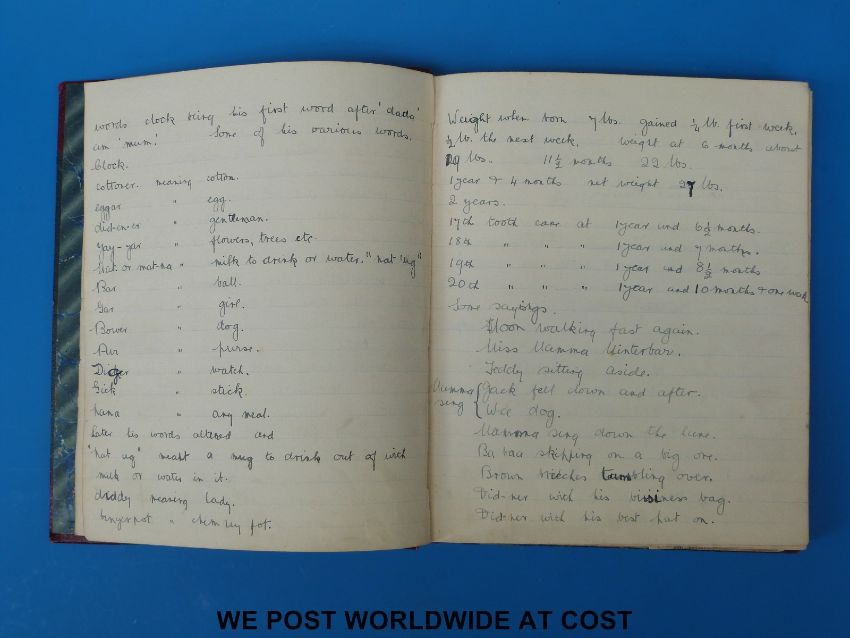 words clock being his first word after 'dada'
am 'mum'. Some of his various words.
Clock.
cottoner. meaning cotton.
eggar " egg.
did-en-er " gentleman.
Yay-yar " flowers, trees etc.
Nat. or mat-na " milk to drink or water. "nat 'ug"
Bar " ball.
Gar " girl.
Bower " dog.
Pur " purse.
Dicker " watch.
Gick " stick.
nana " any meal.
Later his words altered and
"nat ug" meant a mug to drink out of with
milk or water in it.
diddy meaning lady.
binyerpot " chimney pot.
Weight when born 7 lbs. gained ¼ lb. first week.
½ lb. the next week. weight at 6 months about
19 lbs. 11½ months 22 lbs.
1 year & 4 months net weight 27 lbs.
2 years.
17th tooth came at 1 year and 6½ months.
18th " " " 1 year and 7 months.
19th " " " 1 year and 8½ months
20th " " " 1 year and 10 months & one week
Some sayings.
Moon walking fast again.
Miss Mamma Winterbar.
Teddy sitting aside.
Mumma sing { Jack fell down and after.
Wee dog.
Mamma sing down the lane.
Ba baa skipping on a big one.
Brown breeches tumbling over.
Did-ner with his bisiness bag.
Did-ner with his best hat on.
WE POST WORLDWIDE AT COST